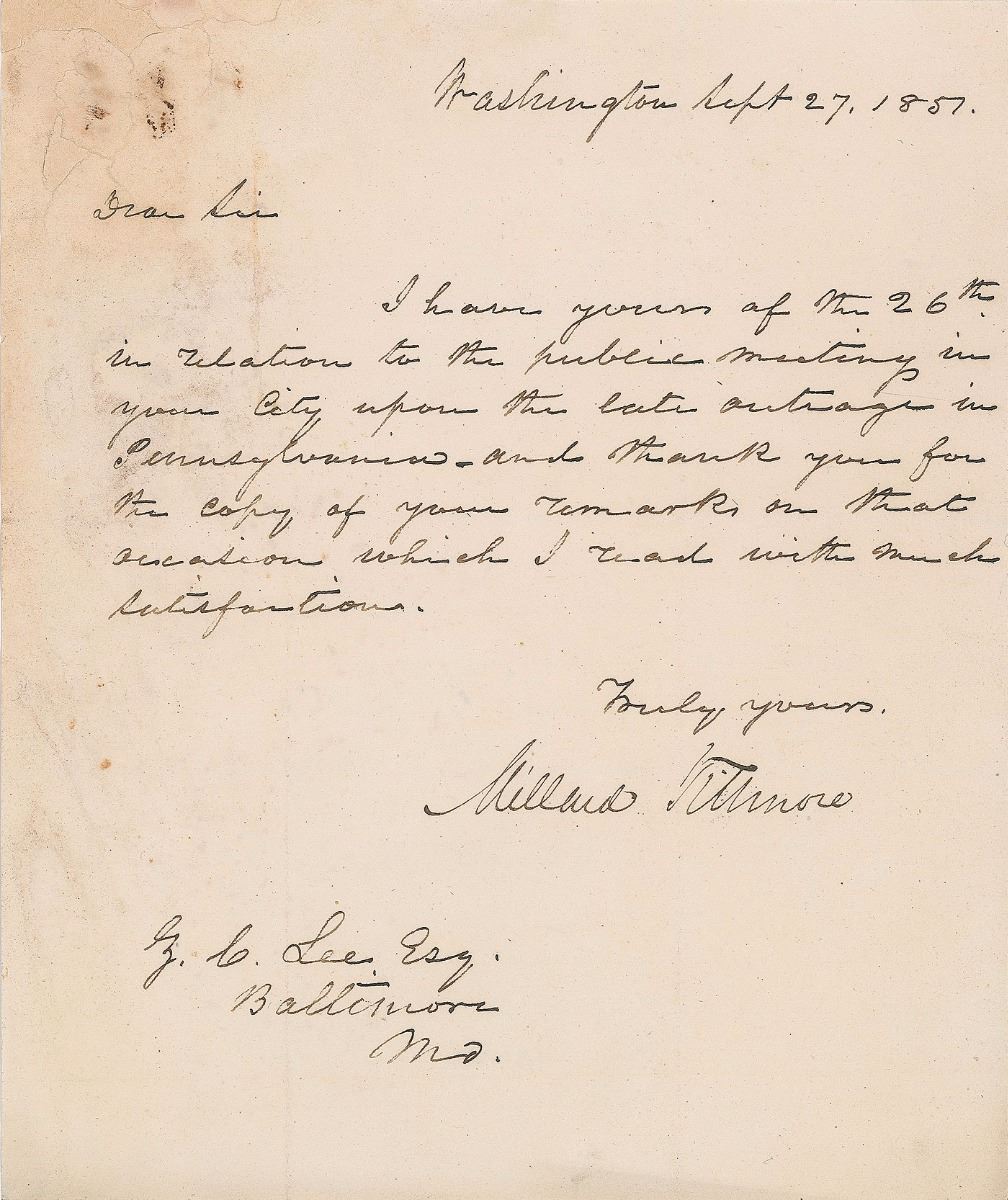 Washington Sept 27. 1851.
Dear Sir
I have yours of the 26th.
in relation to the public meeting in
your City upon the late outrage in
Pennsylvania - and thank you for
the copy of your remarks on that
occasion which I read with much
satisfaction.
Truly yours.
Millard Fillmore
Z. C. Lee Esq.
Baltimore
Md.